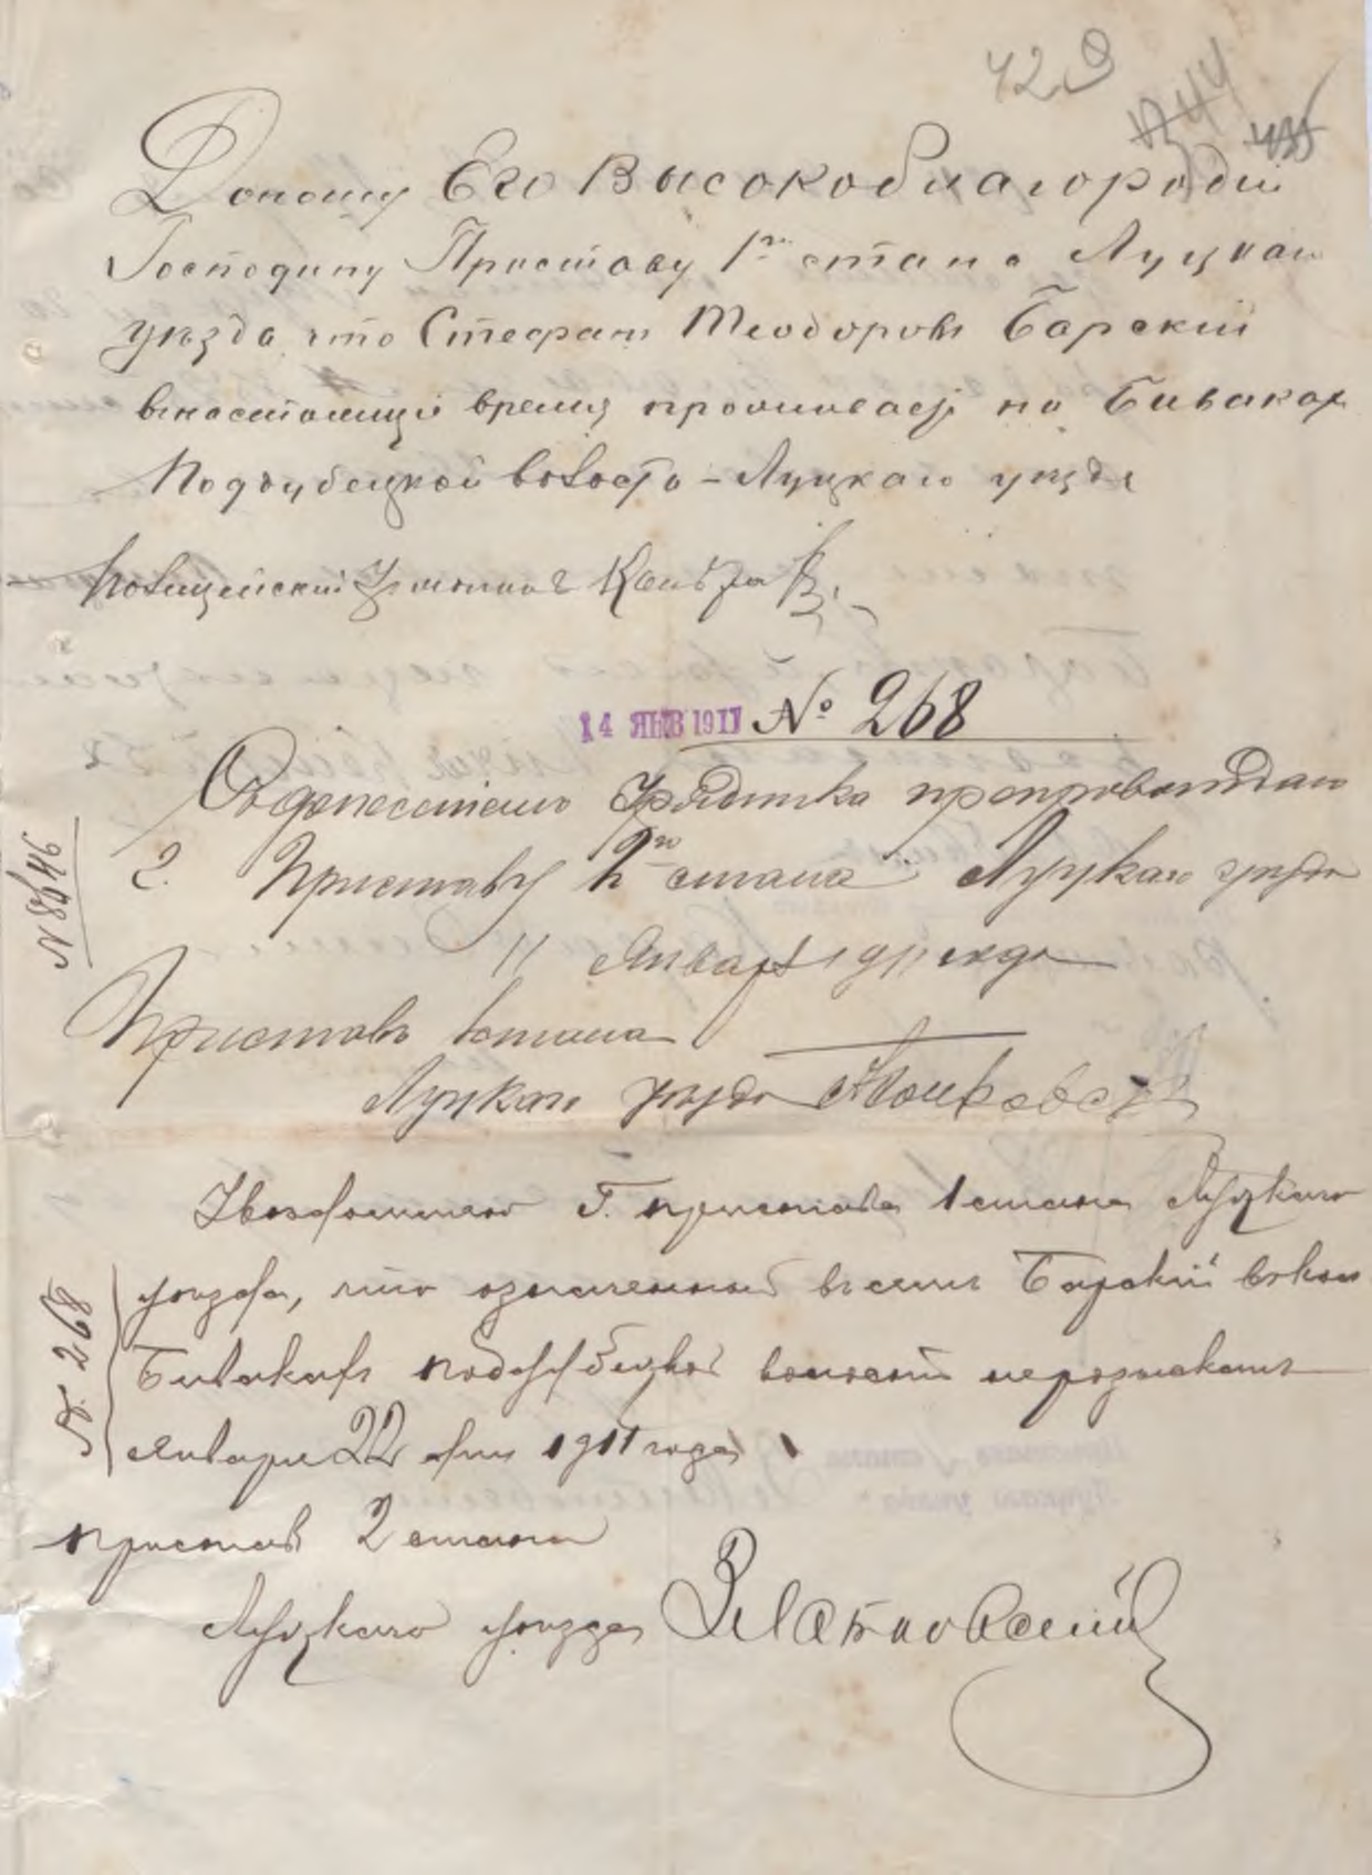 429
Доношу Его Высокоблагородію
Господину Приставу 1го стана Луцкаго
уѣзда что Стефанъ Теодоровъ Барскій
внастоящее время проживаетъ на Бивакахъ
Поддубецкой волости - Луцкаго уѣзда
Полицейскій Урядникъ
14 ЯНВ 1911 № 268
Съ донесеніемъ Урядника препровождаю
Г. Приставу 2го стана Луцкаго уѣзда
11 Января 1911 года
№ 8646
Приставъ 1 стана
Луцкаго уѣзда
Увѣдомляю Г. пристава 1 стана Луцкаго
уѣзда, что означенный въ семъ Барскій в кол.
Бивакахъ Поддубецкой волости неразысканъ
Января 22 дня 1911 года
№ 268
Приставъ 2 стана
Луцкаго уѣзда